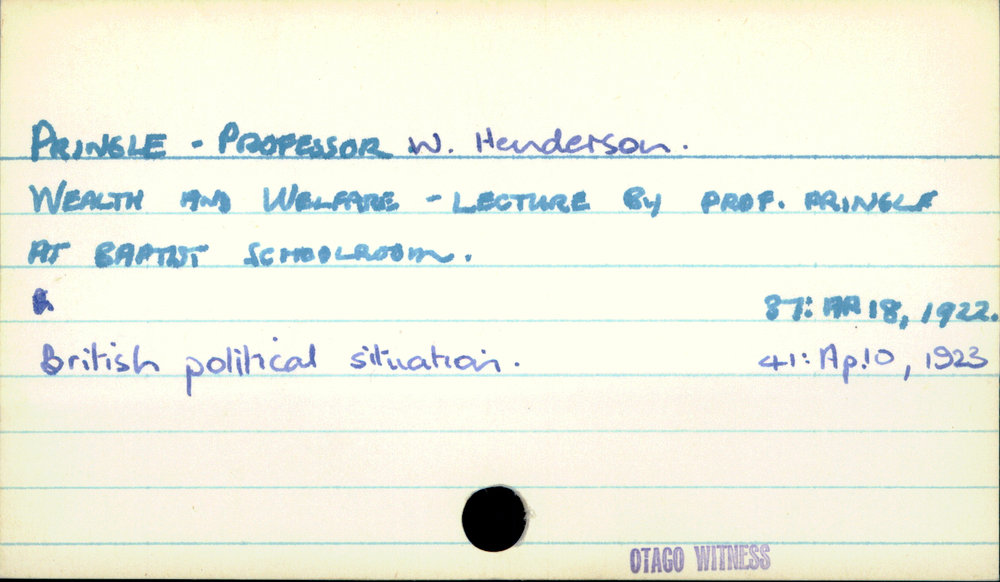 PRINGLE - PROFESSOR W. Henderson.
WEALTH AND WELFARE - LECTURE BY PROF. PRINGLE
AT BAPTIST SCHOOLROOM.
87: AP 18, 1922.
British political situation. 41: Ap.10, 1923
OTAGO WITNESS